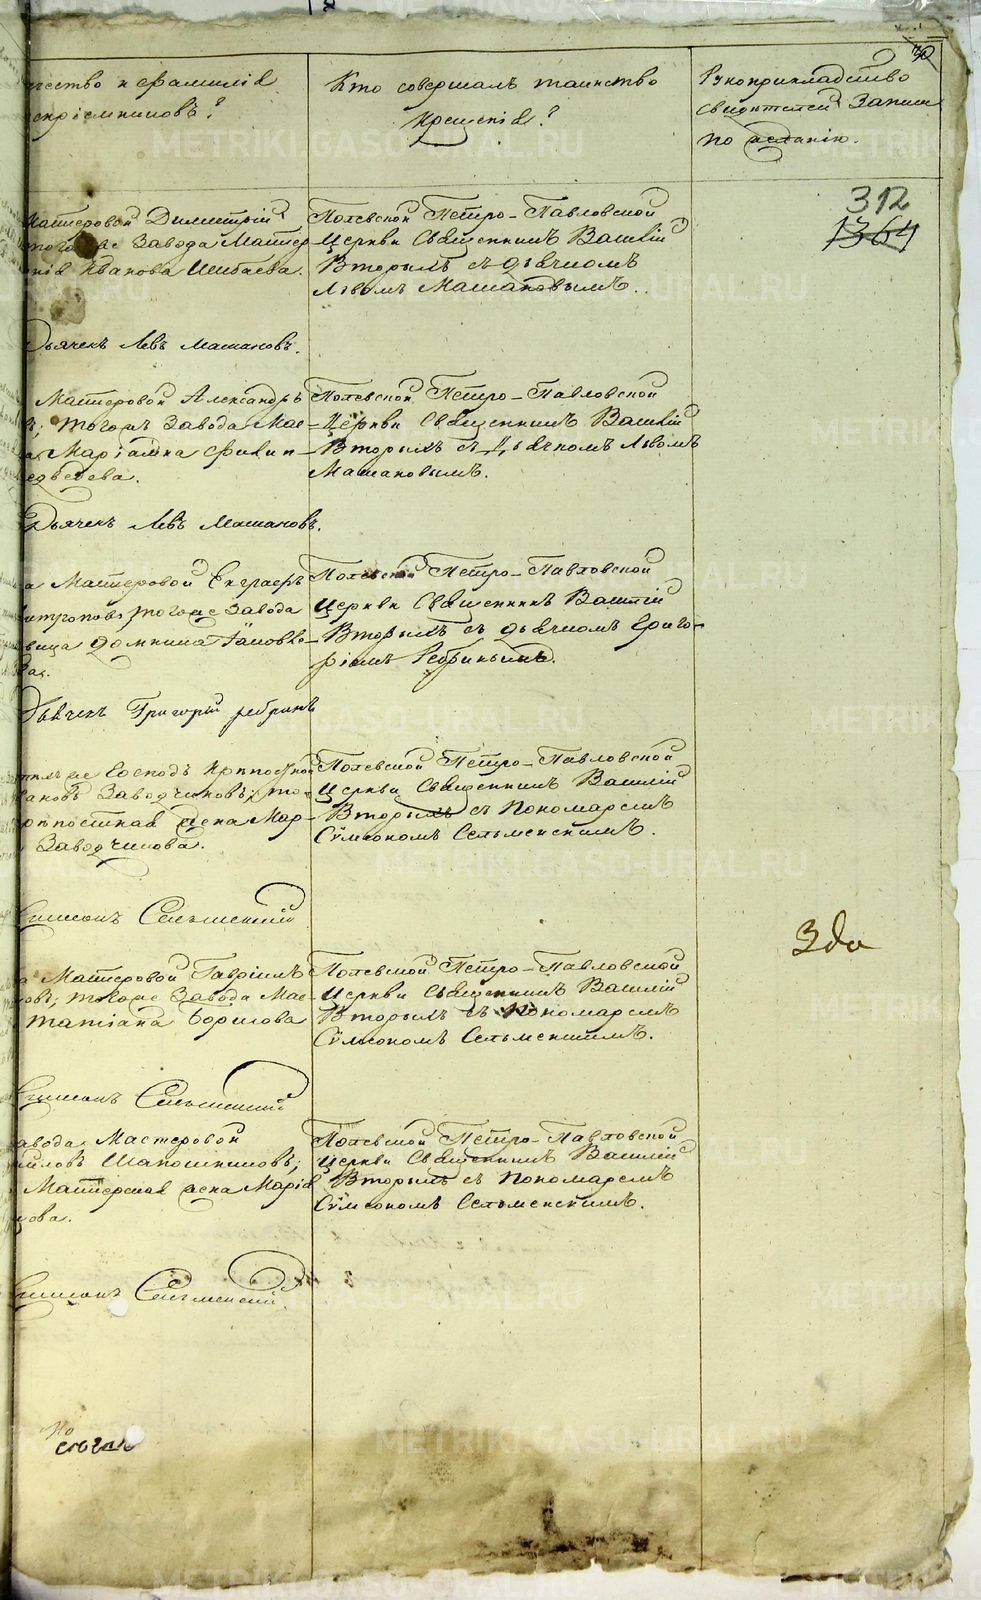 чество и фамилія
скріемниковъ?
Кто совершалъ таинство
крещенія?
Рукоприкладство
свидѣтелей записи
по желанію.
312
1364
Мастеровой Димитрій
тогоже Завода Мастер
Иванова Шибаева.
Полевской Петро-Павловской
Церкви Священникъ Василій
Вторыхъ съ дьячкомъ
Львомъ Машановымъ.
Дьячекъ Левъ Машановъ.
Мастеровой Александръ
въ; тогожъ Завода Мас-
а Маріамна Филип
едведева.
Полевской Петро-Павловской
Церкви Священникъ Василій
Вторыхъ съ Дьячкомъ Львомъ
Машановымъ.
Дьячекъ Левъ Машановъ.
а Мастеровой Евграфъ
итроповъ; тогоже Завода
вица Домника Яковле-
ва.
Полевской Петро-Павловской
Церкви Священникъ Василій
Вторыхъ съ дьячкомъ Григо-
ріемъ Ребринымъ.
Дьячекъ Григорій Ребринъ
Господъ Крѣпостной
ановъ Заводчиковъ; то-
рѣпостная жена Мар-
Заводчикова.
Полевской Петро-Павловской
Церкви Священникъ Василій
Вторыхъ съ Пономаремъ
Сѵмеономъ Сельменскимъ.
Симеонъ Сельменскій
Зда
а Мастеровой Гавріилъ
ковъ; тогоже Завода Мас-
Татіана Борисова
Полевской Петро-Павловской
Церкви Священникъ Василій
Вторыхъ съ Пономаремъ
Сѵмеономъ Сельменскимъ.
Симеонъ Сельменскій
авода Мастеровой
йловъ Шапошниковъ;
Мастерская жена Марія
цова.
Полевской Петро-Павловской
Церкви Священникъ Василій
Вторыхъ съ Пономаремъ
Сѵмеономъ Сельменскимъ.
Симеонъ Сельменскій.
METRIKI.GASO-URAL.RU